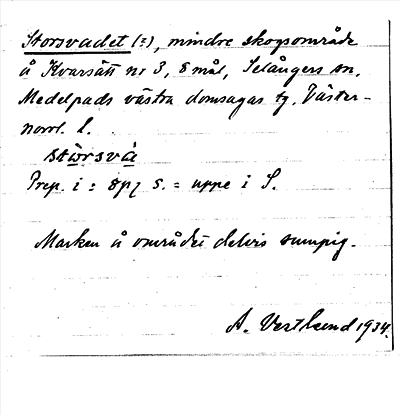 Storsvadet (:), mindre skogsområde
å Kvarsätt nr 3, 8 mål, Selångers sn,
Medelpads västra domsagas tg. Väster-
norrl. l.
storsvà
Prep. i: s. = uppe i S.
Marken å området delvis sumpig.
A. Vestlund 1934.